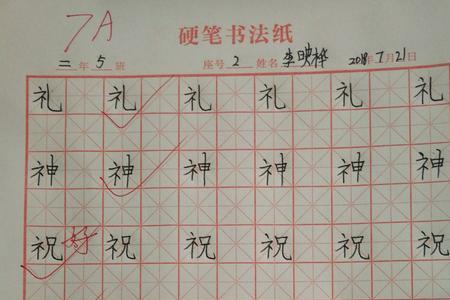 7A
硬笔书法纸
二年5班 座号2 姓名李映桦 2018年7月21日
礼 礼 礼 礼 礼 礼
神 神 神 神 神 神
祝 好 祝 祝 祝 祝 祝